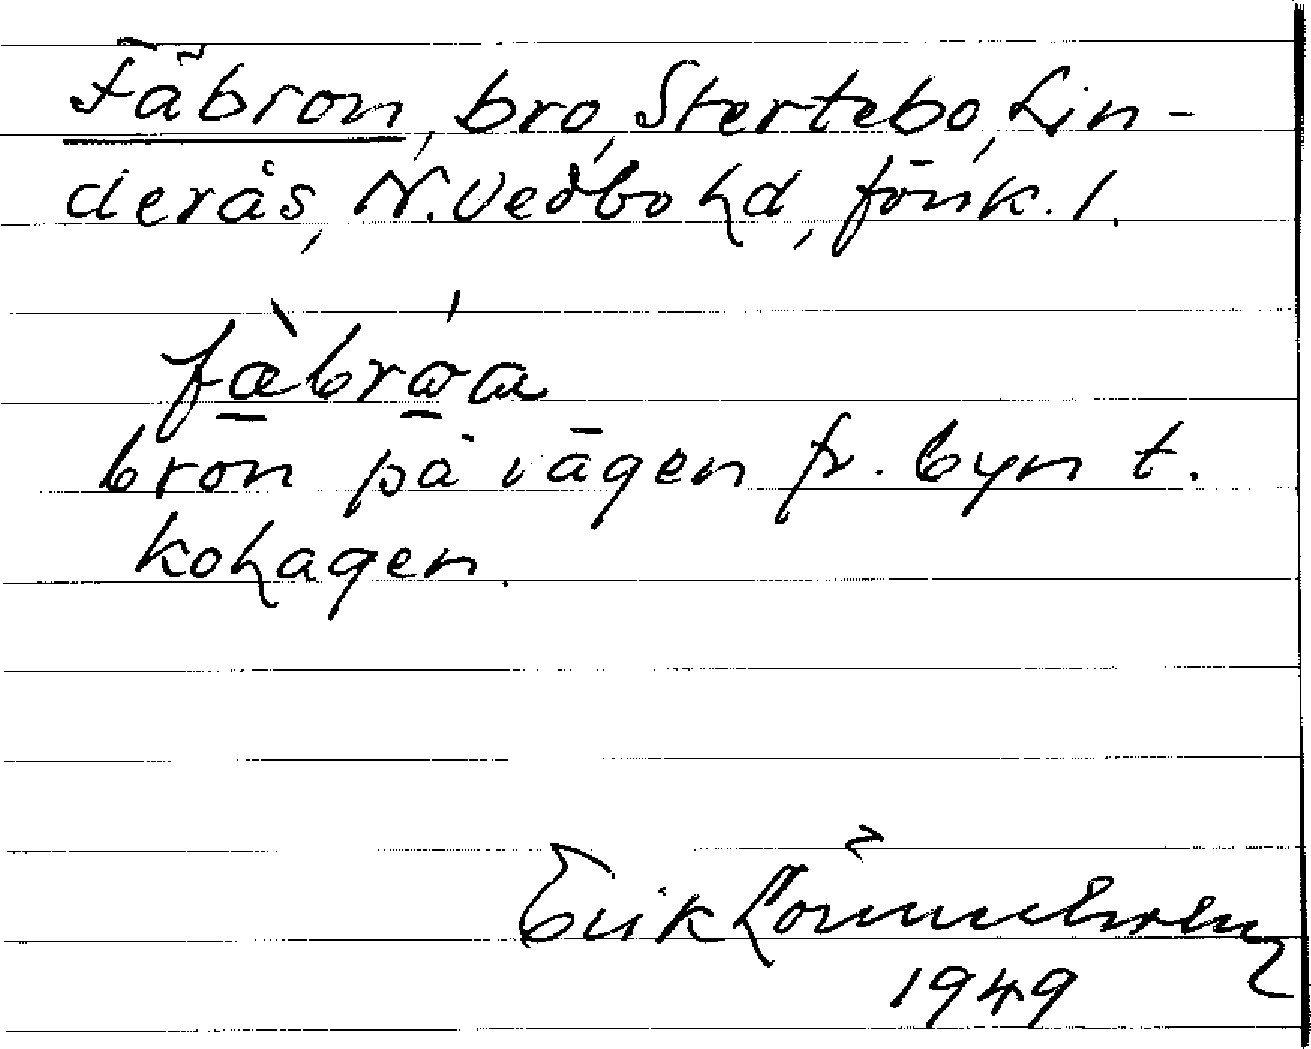 Fäbron, bro, Stertebo, Lin-
derås, N. Vedbo hd, Jönk. l.
fæ̀brώa
bron på vägen fr. byn t.
kohagen.
Erik Lönneholm
1949